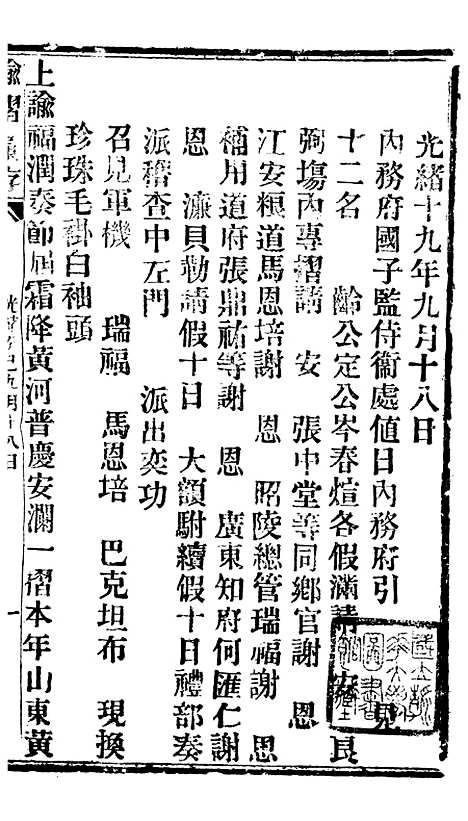 光緒十九年九月十八日
內務府國子監侍衞處値日內務府引　見
十二名　齡公定公岑春煊各假滿請　安　良
弼塲內專摺請　安　張中堂等同鄉官謝　恩
江安糧道馬恩培謝　恩　昭陵總管瑞福謝　恩
補用道府張鼎祐等謝　恩　廣東知府何匯仁謝
恩　濂貝勒請假十日　大額駙續假十日禮部奏
派稽查中左門　派出奕功
召見軍機　瑞福　馬恩培　巴克坦布　現換
珍珠毛褂白袖頭
上諭福潤奏節屆霜降黃河普慶安瀾一摺本年山東黃
諭摺彙存
光緒癸巳九月十八日
一